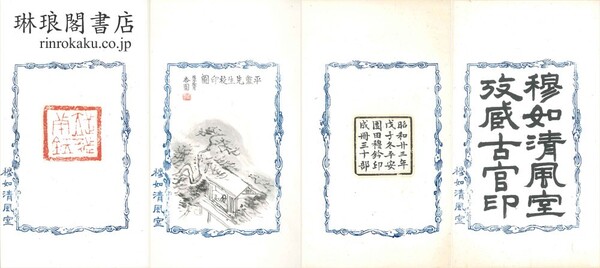 琳琅閣書店
rinrokaku.co.jp
穆如清風室
攷藏古官印
穆如清風室
昭和廿三年
戊子冬平安
園田穆鈐印
成冊三十部
先生校印圖
穆如清風室
穆如清風室